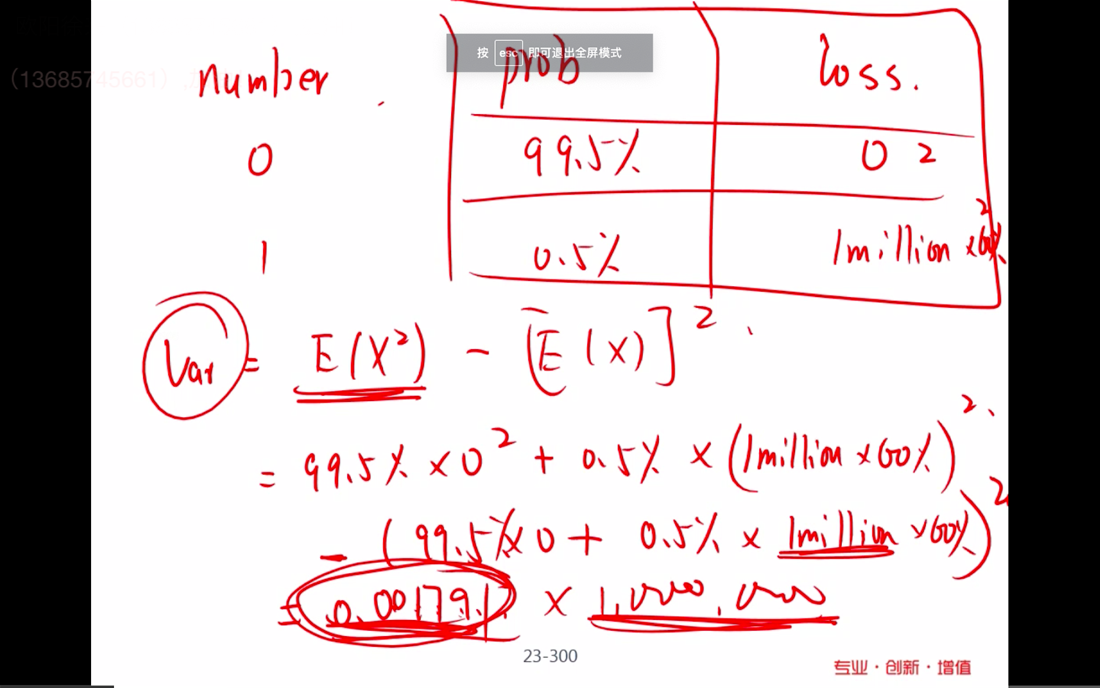 按 esc 即可退出全屏模式
(13685745661)
number prob loss.
0 99.5% 0 2
1 0.5% 1million × 60% 2
Var = E(X²) - [E(X)]²
= 99.5% × 0² + 0.5% × (1million × 60%)²
- (99.5% × 0 + 0.5% × 1million × 60%)²
= 0.001791 × 1,000,000
23-300
专业·创新·增值